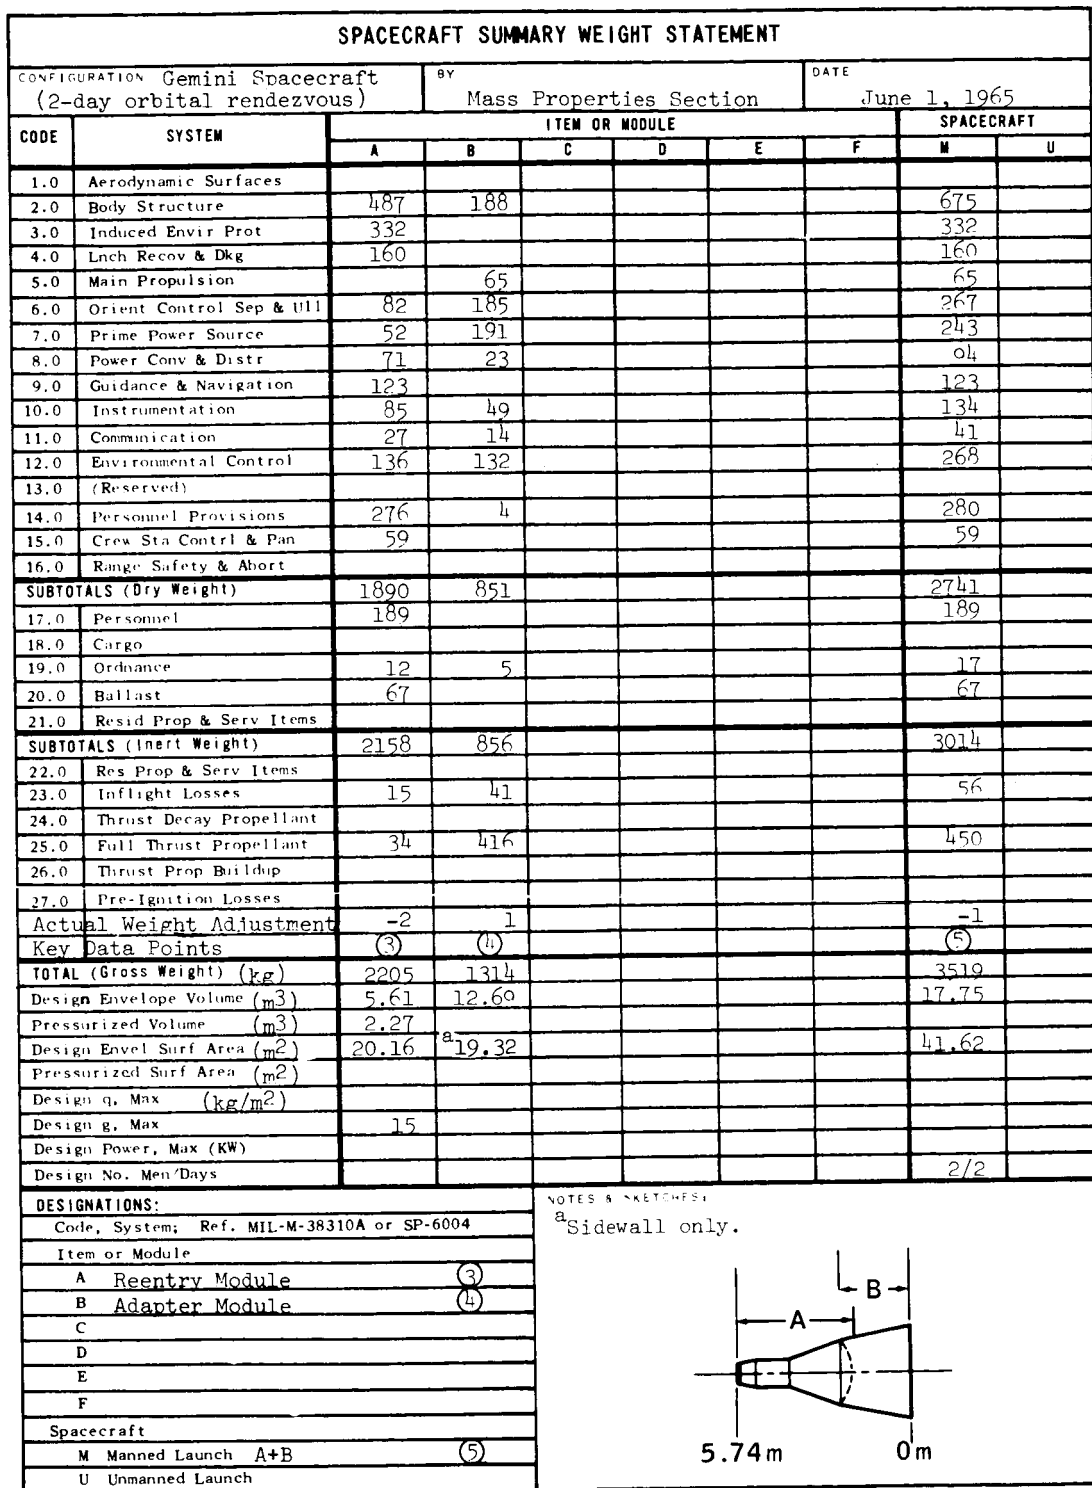 SPACECRAFT SUMMARY WEIGHT STATEMENT
CONFIGURATION Gemini Spacecraft
(2-day orbital rendezvous)
BY
Mass Properties Section
DATE
June 1, 1965
CODE SYSTEM ITEM OR MODULE SPACECRAFT
A B C D E F M U
1.0 Aerodynamic Surfaces
2.0 Body Structure 487 188 675
3.0 Induced Envir Prot 332 332
4.0 Lnch Recov & Dkg 160 160
5.0 Main Propulsion 65 65
6.0 Orient Control Sep & Ull 82 185 267
7.0 Prime Power Source 52 191 243
8.0 Power Conv & Distr 71 23 94
9.0 Guidance & Navigation 123 123
10.0 Instrumentation 85 49 134
11.0 Communication 27 14 41
12.0 Environmental Control 136 132 268
13.0 (Reserved)
14.0 Personnel Provisions 276 4 280
15.0 Crew Sta Contrl & Pan 59 59
16.0 Range Safety & Abort
SUBTOTALS (Dry Weight) 1890 851 2741
17.0 Personnel 189 189
18.0 Cargo
19.0 Ordnance 12 5 17
20.0 Ballast 67 67
21.0 Resid Prop & Serv Items
SUBTOTALS (Inert Weight) 2158 856 3014
22.0 Res Prop & Serv Items
23.0 Inflight Losses 15 41 56
24.0 Thrust Decay Propellant
25.0 Full Thrust Propellant 34 416 450
26.0 Thrust Prop Buildup
27.0 Pre-Ignition Losses
Actual Weight Adjustment -2 1 -1
Key Data Points ③ ④ ⑤
TOTAL (Gross Weight) (kg) 2205 1314 3519
Design Envelope Volume (m3) 5.61 12.69 17.75
Pressurized Volume (m3) 2.27
Design Envel Surf Area (m2) 20.16 a19.32 41.62
Pressurized Surf Area (m2)
Design q, Max (kg/m2)
Design g, Max 15
Design Power, Max (KW)
Design No. Men/Days 2/2
DESIGNATIONS:
Code, System; Ref. MIL-M-38310A or SP-6004
Item or Module
A Reentry Module ③
B Adapter Module ④
C
D
E
F
Spacecraft
M Manned Launch A+B ⑤
U Unmanned Launch
NOTES & SKETCHES:
aSidewall only.
B
A
5.74m 0m